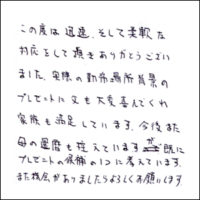 この度は迅速、そして柔軟な
対応をして頂きありがとうござい
ました。実際の勤務場所背景の
プレゼントに父も大変喜んでくれ
家族も満足しています。今後また
母の還暦も控えていますが既に
プレゼントの候補の1つに考えています。
また機会がありましたらよろしくお願いします